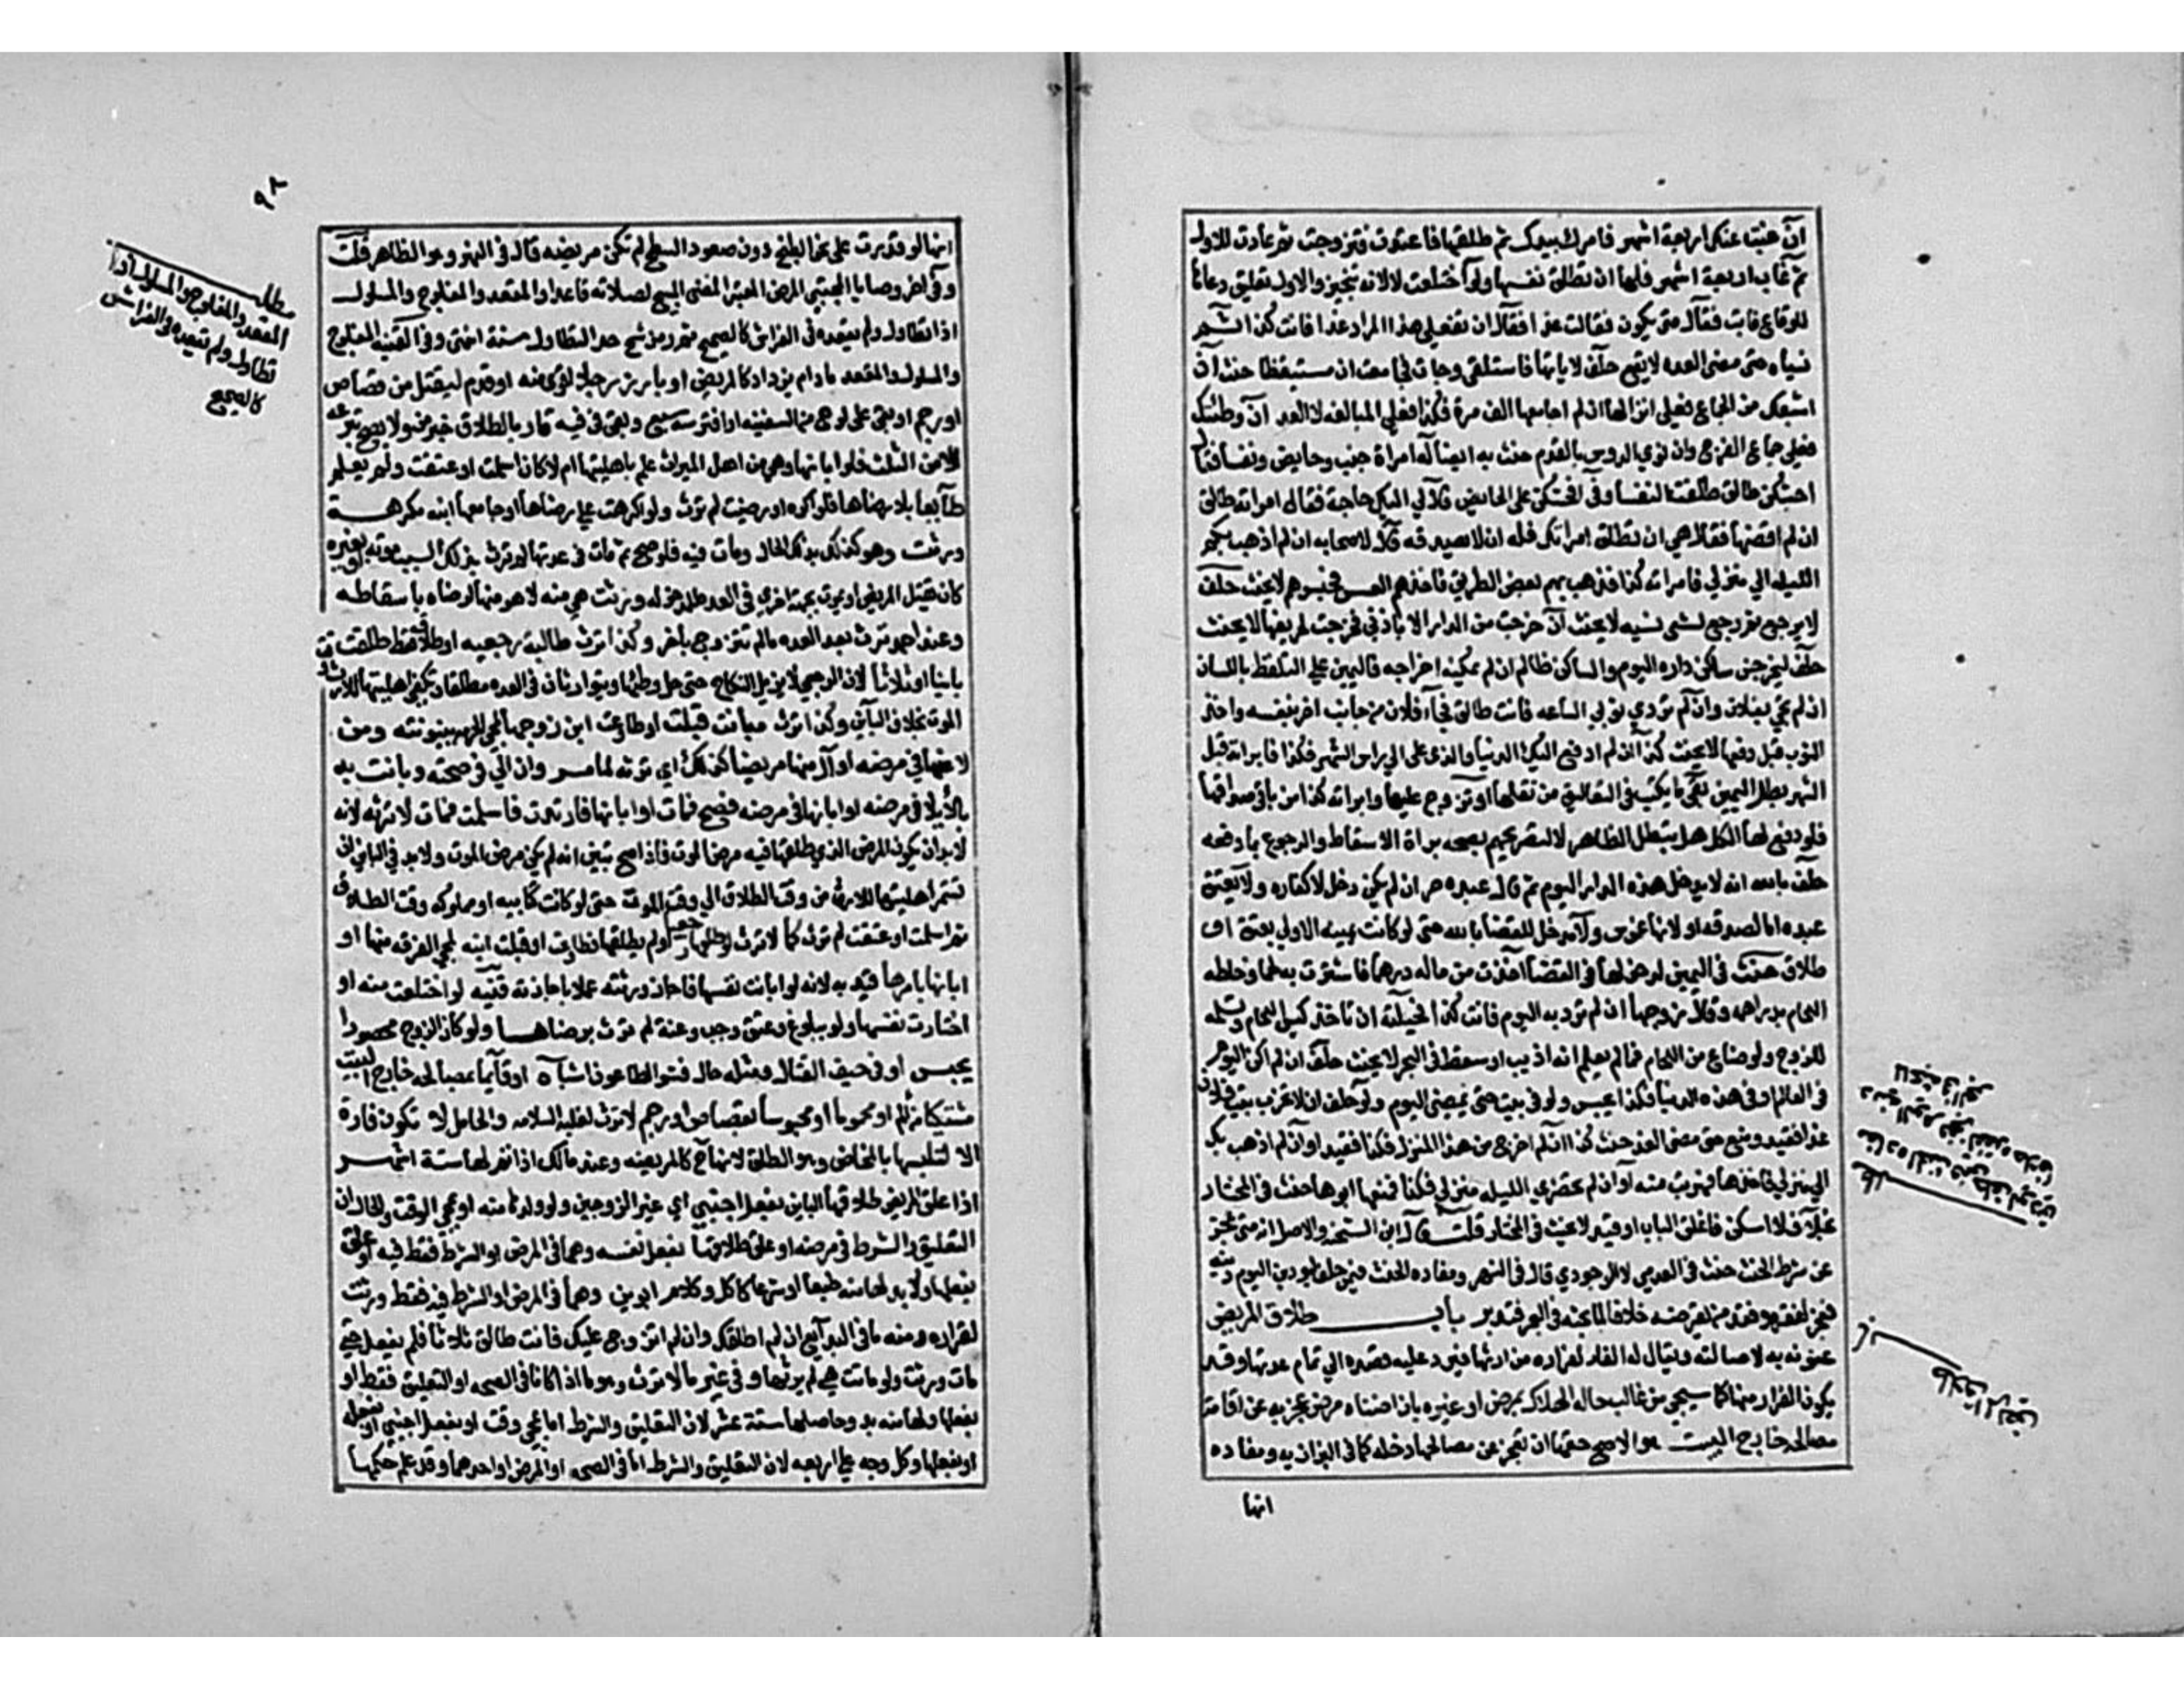 ان غبت عنك اربعة اشهر فامرك بيدك ثم طلقها فاعتدت فتزوجت ثم عادت للاول
ثم غاب اربعة اشهر فلها ان تطلق نفسها ولو اختلعت لا لانه تنجيز والاول تعليق دعاها
للوقاع فابت فقال متى يكون فقالت غدا فقال ان تفعلي هذا المراد غدا فانت كذا
نسياه حتى مضى الغد لا يقع حلف لا ياتها فاستلقى وجات فجامعت ان مستيقظا حنث ان
اشبعك من الجماع فعلى انزالها ان لم اجامعها الف مرة فكذا فعلى المبالغه لا العدد ان وطئتك
فعلى جماع الفرج وان نوى الدوس بالقدم حنث به ايضا له امراة جنب وحايض ونفسا فقال
اخبثكن طالق طلقت النفسا وفي افحشكن على الحايض قال لي اليك حاجة فقال امراته طالق
ان لم اقضها فقال هي ان تطلق امراتك فله ان لا يصدقه قال لاصحابه ان لم اذهب بكم
الليلة الى منزلي فامراته كذا فذهب بهم بعض الطريق فاخذهم العسس فحبسوهم لا يحنث حلف
لا يرجع ثم رجع لشي نسيه لا يحنث ان خرجت من الدار الا باذني فخرجت لحريقها لا يحنث
حلف ليخرجن ساكن داره اليوم والساكن ظالم ان لم يمكنه اخراجه فاليمين على التلفظ باللسان
ان لم تجي بفلان وان لم تردي ثوبي الساعه فانت طالق فجاء فلان من جانب اخر بنفسه واخذ
الثوب قبل دفعها لا يحنث كذا ان لم ادفع اليك الدينار الذي على الى راس الشهر فكذا فابراته قبل
الشهر بطل اليمين بقي ما يكتب في التعاليق متى نقلها او تزوج عليها وابراته كذا من باقي صداقها
فلو دفع لها الكل هل يبطل الظاهر لا لتصريحهم بصحه براة الاسقاط والرجوع بما دفعه
حلف بالله انه لا يدخل هذه الدار اليوم ثم قال عبده حر ان لم يكن دخل لا كفاره ولا يعتق
عبده اما لصدقه او لانها غموس ولا مدخل للقضا بالله حتى لو كانت يمينه الاولى بعتق او
طلاق حنث في اليمين لدخولها في القضا اخذت من ماله درهما فاشترت به لحما وخلطه
اللحام بدراهمه وقال زوجها ان لم ترد به اليوم فانت كذا فحيلته ان تاخذ كيس اللحام وتسلمه
للزوج ولو ضاع من اللحام فما لم يعلم انه اذيب او سقط في البحر لا يحنث حلف ان لم اكن اليوم
في العالم او في هذه الدنيا فكذا يحبس ولو في بيت حتى يمضي اليوم ولو حلف ان لم اخرب بيت فلان
غدا فقيد ومنع حتى مضى الغد حنث كذا ان لم اخرج من هذا المنزل فكذا فقيد او ان لم اذهب بك
الى منزلي فاخذها فهربت منه او ان لم تحضري الليله منزلي فكذا فمنعها ابوها حنث في المختار
بخلاف لا اسكن فاغلق الباب او قيد لا يحنث في المختار قلت قال ابن الشحنه والاصل انه متى عجز
عن شرط الحنث حنث في العدمي لا الوجودي قال في النهر ومفاده الحنث فيمن حلف ليودين اليوم دينه
فعجز لفقره وفقد من يقرضه خلافا لما بحثه في البحر فتدبر باب طلاق المريض
عنون به لاصالته ويقال له الفار لفراره من ارثها فيرد عليه قصده الى تمام عدتها وقد
يكون الفرار منها كما سيجي من غالب حاله الهلاك بمرض او غيره بان اضناه مرض عجز به عن اقامة
مصالحه خارج البيت هو الاصح حقها ان تعجز عن مصالحها داخله كما في البزازيه ومفاده
انها
طلاق المريض
٩٢
انها لو قدرت على نحو الطبخ دون صعود السطح لم تكن مريضه قال في النهر وهو الظاهر قلت
وفي اخر وصايا المجتبى المرض المعتبر المضني المبيح لصلاته قاعدا والمقعد والمفلوج والمسلول
اذا تطاول ولم يقعده في الفراش كالصحيح ثم رمز شح حد التطاول سنة انتهى وفي القنيه المفلوج
والمسلول والمقعد ما دام يزداد كالمريض او بارز رجلا اقوى منه او قدم ليقتل من قصاص
او رجم او بقي على لوح من السفينه او افترسه سبع وبقي في فيه فار بالطلاق خبر من ولا يصح تبرعه
الا من الثلث فلو ابانها وهي من اهل الميراث علم باهليتها ام لا كان اسلمت او عتقت ولم يعلم
طايعا بلا رضاها فلو اكره او رضيت لم ترث ولو اكرهت على رضاها او جامعها ابنه مكرهة
ورثت وهو كذلك بذلك الحال ومات فيه فلو صح ثم مات في عدتها لم ترث بذلك السبب موته او بغيره
كان يقتل المريض او يموت بجهة اخرى في العده للمدخوله ورثت هي منه لا هو منها لرضاه باسقاطه
وعند احمد ترث بعد العده ما لم تتزوج باخر وكذا ترث طالبة رجعيه او طلاق فقط طلقت
باينا او ثلاثا لان الرجعي لا يزيل النكاح حتى حل وطئها ويتوارثان في العده مطلقا وتكفي اهليتها للارث
الموت بخلاف الباين وكذا ترث مبانت قبلت او طاوعت ابن زوجها لمجي الحرمه ببينونته ومن
لاعنها في مرضه او آلى منها مريضا كذلك اي ترثه لما مر وان آلى في صحته وبانت به
بالايلا في مرضه او ابانها في مرضه فصح فمات او ابانها فارتدت فاسلمت فمات لا ترثه لانه
لا بد ان يكون المرض الذي طلقها فيه مرض الموت فاذا صح تبين انه لم يكن مرض الموت ولا بد في الباين ان
تستمر اهليتها للارث من وقت الطلاق الى وقت الموت حتى لو كانت كتابيه او مملوكه وقت الطلاق
ثم اسلمت او عتقت لم ترث كما لا ترث لو طلقها رجعيا او لم يطلقها فطاوعت او قبلت ابنه لمجي الفرقه منها او
ابانها بامرها قيد به لانه لو ابانت نفسها فاجاز ورثته عملا باجازته قنيه لو اختلعت منه او
اختارت نفسها ولو ببلوغ وعتق وجب وعنة لم ترث لرضاها ولو كان الزوج محصورا
بحبس او في صف القتال ومثله حال فشو الطاعون اشباه او قايما بمصالحه خارج البيت
مشتكيا من الم او محموما او محبوسا لقصاص او رجم لا ترث لغلبة السلامه والحامل لا تكون فارة
الا لتلبسها بالمخاض وهو الطلق لانها ح كالمريضه وعند مالك اذا تم لها ستة اشهر
اذا علق المريض طلاقها الباين بفعل اجنبي اي غير الزوجين ولو ولدها منه او بمجي الوقت والحال ان
التعليق والشرط في مرضه او علق طلاقها بفعل نفسه وهما في المرض او الشرط فقط فيه او علق
بفعلها ولا بد لها منه طبعا او شرعا كاكل وكلام ابوين وهما في المرض او الشرط فيه فقط ورثت
لفراره ومنه ما في البدايع ان لم اطلقك وان لم اتزوج عليك فانت طالق ثلاثا فلم يفعل حتى
مات ورثت ولو ماتت هي لم يرثها وفي غيرها لا ترث وهو ما اذا كانا في الصحه او التعليق فقط او
بفعلها ولها منه بد وحاصلها ستة عشر لان التعليق والشرط اما بمجي وقت او بفعل اجنبي او بفعله
او بفعلها وكل وجه على اربعه لان التعليق والشرط اما في الصحه او المرض او احدهما وقد علم حكمها
مطلب
المقعد والمفلوج والمسلول اذا
تطاول ولم تقعده في الفراش
كالصحيح